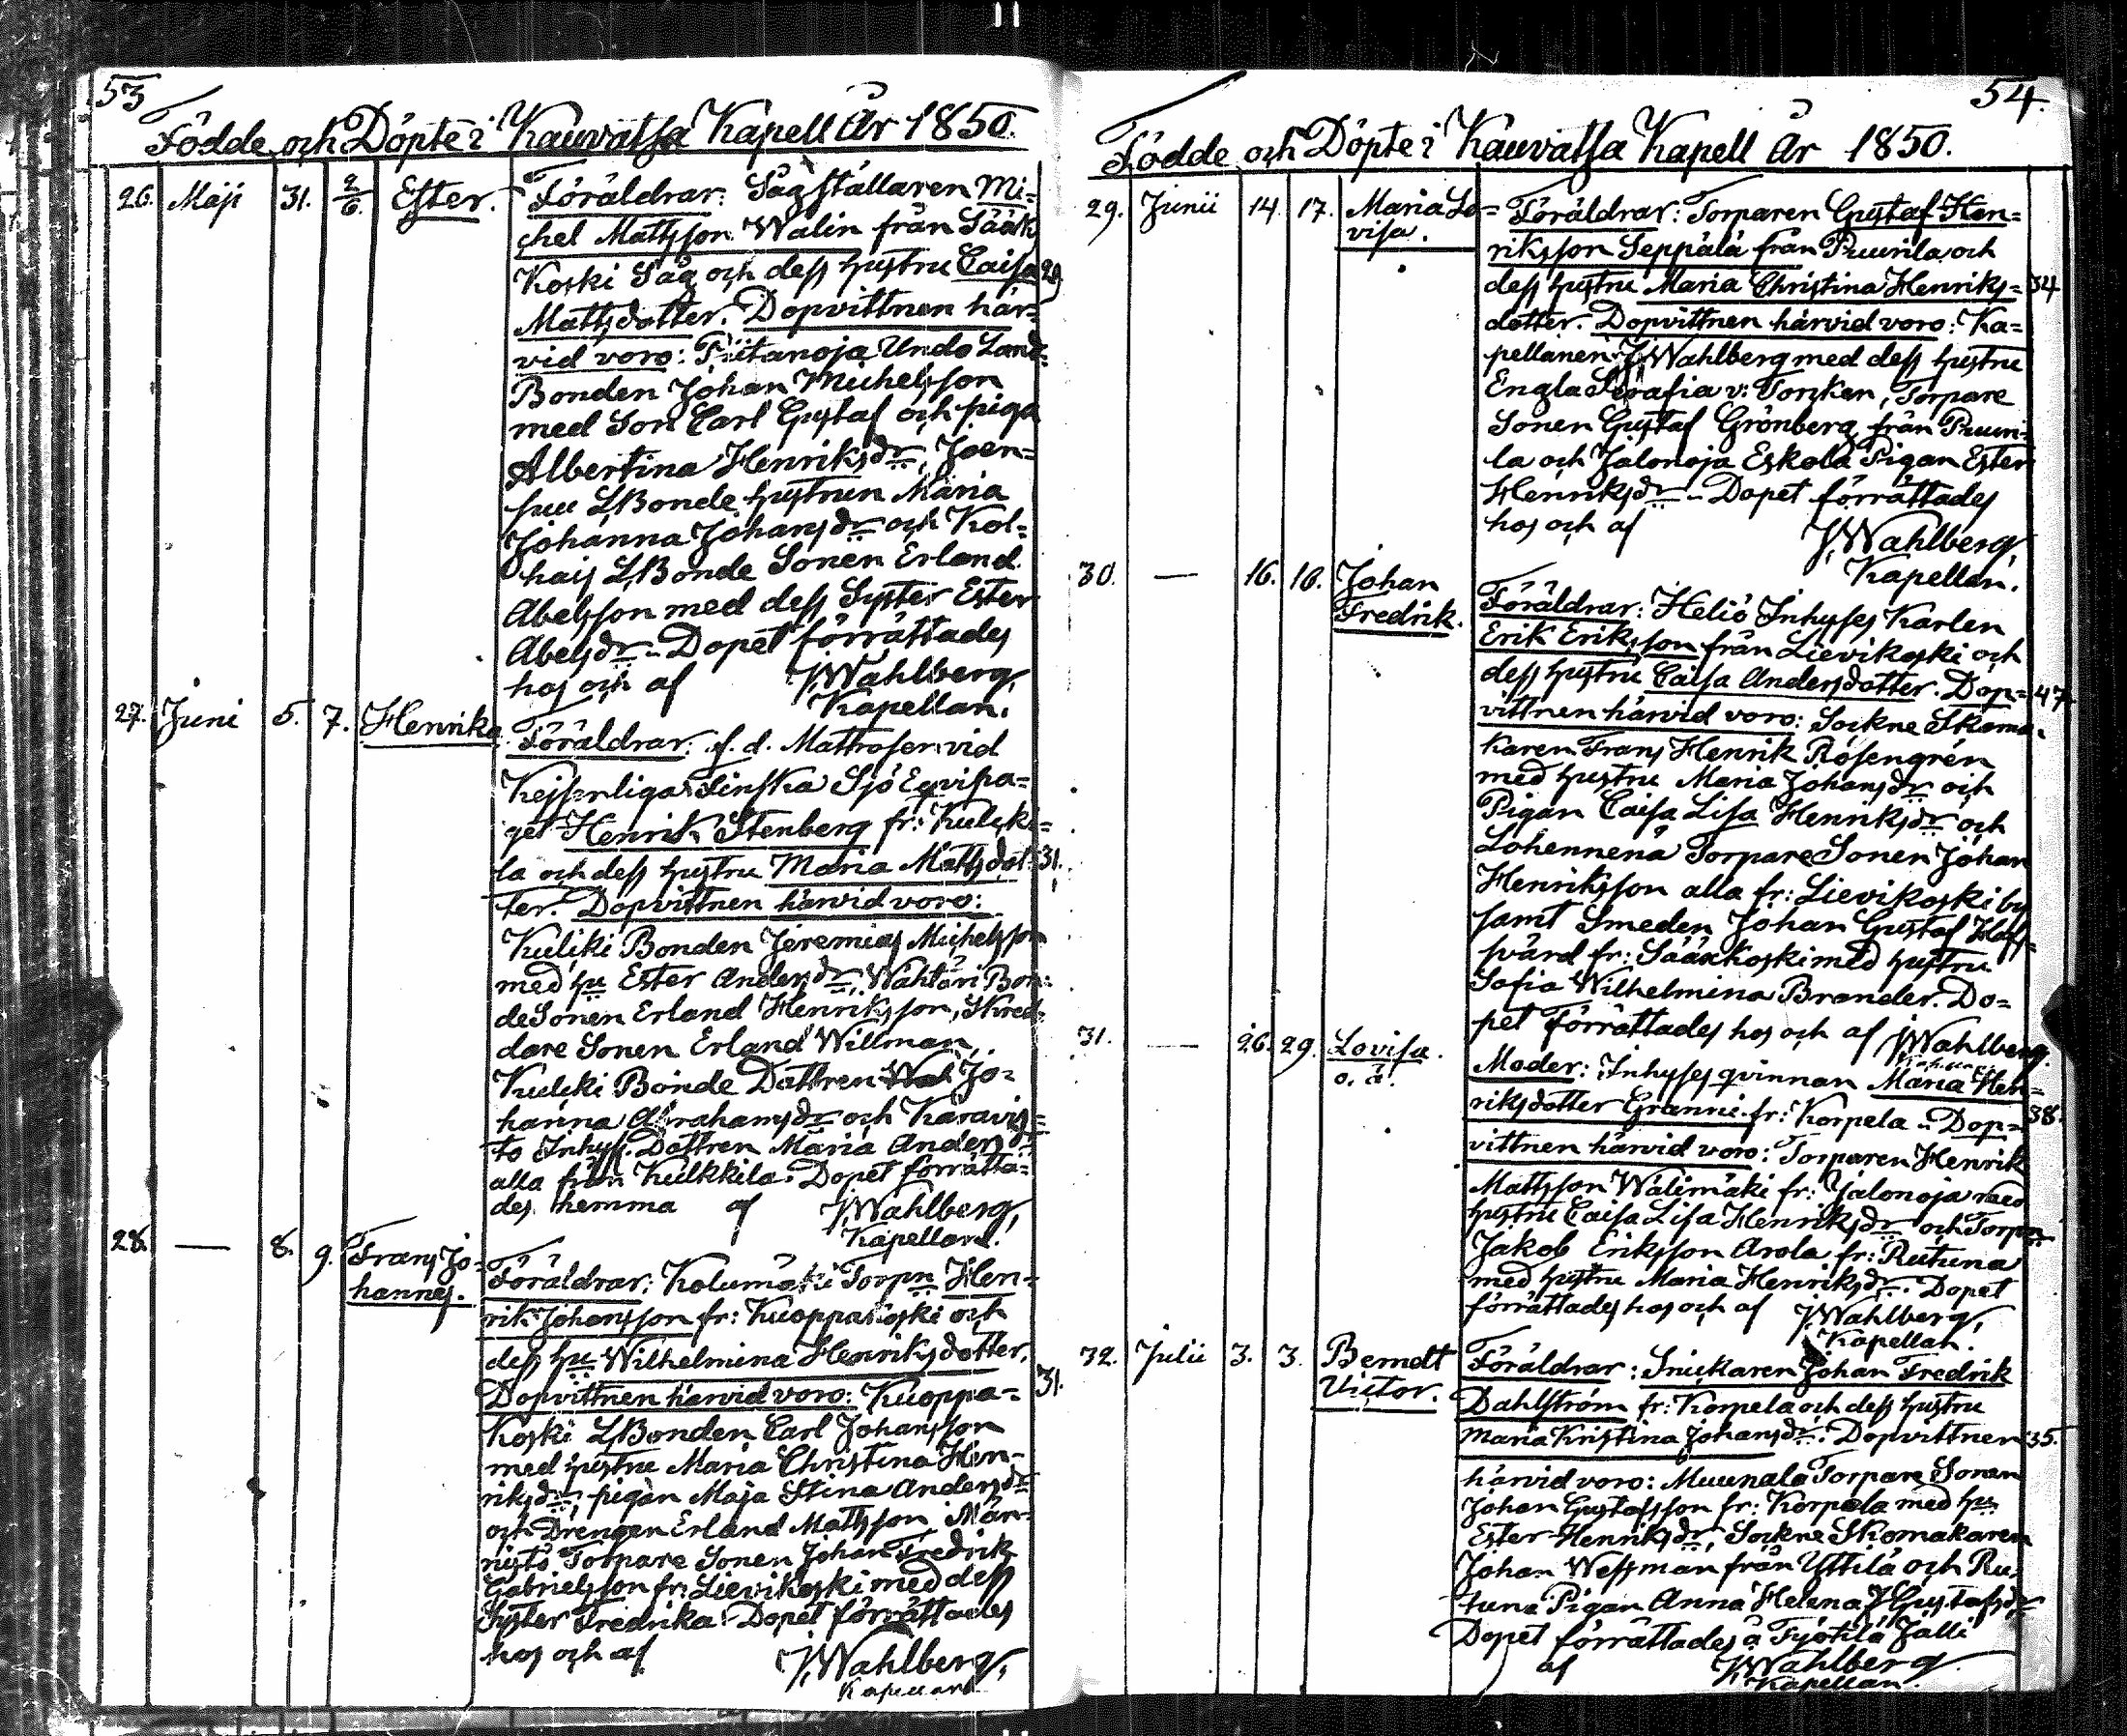 53
Födde och Döpte i Kauvatsa Kapell År 1850.
26. Maji 31. 2/6. Ester. Föräldrar: Sågställaren Mi=
chel Mattsson Walin från Sääks
Koski Såg och dess hustru Caisa 29
Mattsdotter. Dopvittnen här=
vid voro: Piitanoja Undo Land=
Bonden Johan Michelsson
med Son Carl Gustaf och piga
Albertina Henriksdr, Joen=
suu LBonde hustrun Maria
Johanna Johansdr och Kol=
hais LBonde Sonen Erland
Abelsson med dess Syster Ester
Abelsdr. Dopet förrättades
hos och af JWahlberg,
Kapellan.
27. Juni 5. 7. Henrika Föräldrar: f. d. Mattrosen vid
Kejserliga Finska Sjö Eqvipa=
get Henrik Stenberg fr: Kulkki=
la och dess hustru Maria Mattsdot= 31.
ter. Dopvittnen härvid voro:
Kulkki Bonden Jeremias Michelsson
med hu Ester Andersdr, Wahtari Bon=
de Sonen Erland Henriksson, Skred=
dare Sonen Erland Willman,
Kulkki Bonde Dottren Jo=
hanna Abrahamsdr och Karavis=
to Inhys. Dottren Maria Andersdr
alla från Kulkkila. Dopet förrätta=
des hemma af JWahlberg,
Kapellan.
28. — 8. 9. Frans Jo=
hannes. Föräldrar: Kolumäki Torpn Hen=
rik Johansson fr: Kuoppakoski och
dess hu Wilhelmina Henriksdotter.
Dopvittnen härvid voro: Kuoppa= 31.
koski LBonden Carl Johansson
med hustru Maria Christina Hen=
riksdr, pigan Maja Stina Andersdr
och Drengen Erland Mattsson, Män=
nistö Torpare Sonen Johan Fredrik
Gabrielsson fr: Lievikoski med dess
Syster Fredrika. Dopet förrättades
hos och af JWahlberg,
Kapellan.
54.
Födde och Döpte i Kauvatsa Kapell År 1850.
29. Junii 14. 17. Maria Lo=
visa. Föräldrar: Torparen Gustaf Hen=
riksson Seppälä från Puurila och
dess hustru Maria Christina Henriks= 34
dotter. Dopvittnen härvid voro: Ka=
pellanen JWahlberg med dess hustru
Engla Serafia v: Torcken, Torpare
Sonen Gustaf Grönberg från Puuri=
la och Jalonoja Eskola Pigan Ester
Henriksdr. Dopet förrättades
hos och af JWahlberg,
Kapellan.
30. — 16. 16. Johan
Fredrik. Föräldrar: Heliö Inhyses Karlen
Erik Eriksson från Lievikoski och
dess hustru Caisa Andersdotter. Dop= 47
vittnen härvid voro: Sockne Skoma=
karen Frans Henrik Rosengrén
med hustru Maria Johansdr och
Pigan Caisa Lisa Henriksdr och
Lohennena Torpare Sonen Johan
Henriksson alla fr: Lievikoski by
samt Smeden Johan Gustaf Haf=
svärd fr: Sääxkoski med hustru
Sofia Wilhelmina Brander. Do=
pet förrättades hos och af JWahlberg.
31. — 26. 29. Lovisa.
o. ä. Moder: Inhyses qvinnan Maria Hen=
riksdotter Granni fr: Korpela. Dop= 38.
vittnen härvid voro: Torparen Henrik
Mattsson Walimäki fr: Jalonoja med
hustru Caisa Lisa Henriksdr och Torpn
Jakob Eriksson Arola fr: Rutuna
med hustru Maria Henriksdr. Dopet
förrättades hos och af JWahlberg,
Kapellan.
32. Julii 3. 3. Berndt
Victor. Föräldrar: Snickaren Johan Fredrik
Dahlström fr: Korpela och dess hustru
Maria Kristina Johansdr. Dopvittnen 35.
härvid voro: Muunala Torpare Sonen
Johan Gustafsson fr: Korpela med hu
Ester Henriksdr, Sockne Skomakaren
Johan Wessman från Yttilä och Ru=
tuna Pigan Anna Helena Gustafsdr
Dopet förrättades å Työtilä Jälli
af JWahlberg
Kapellan.